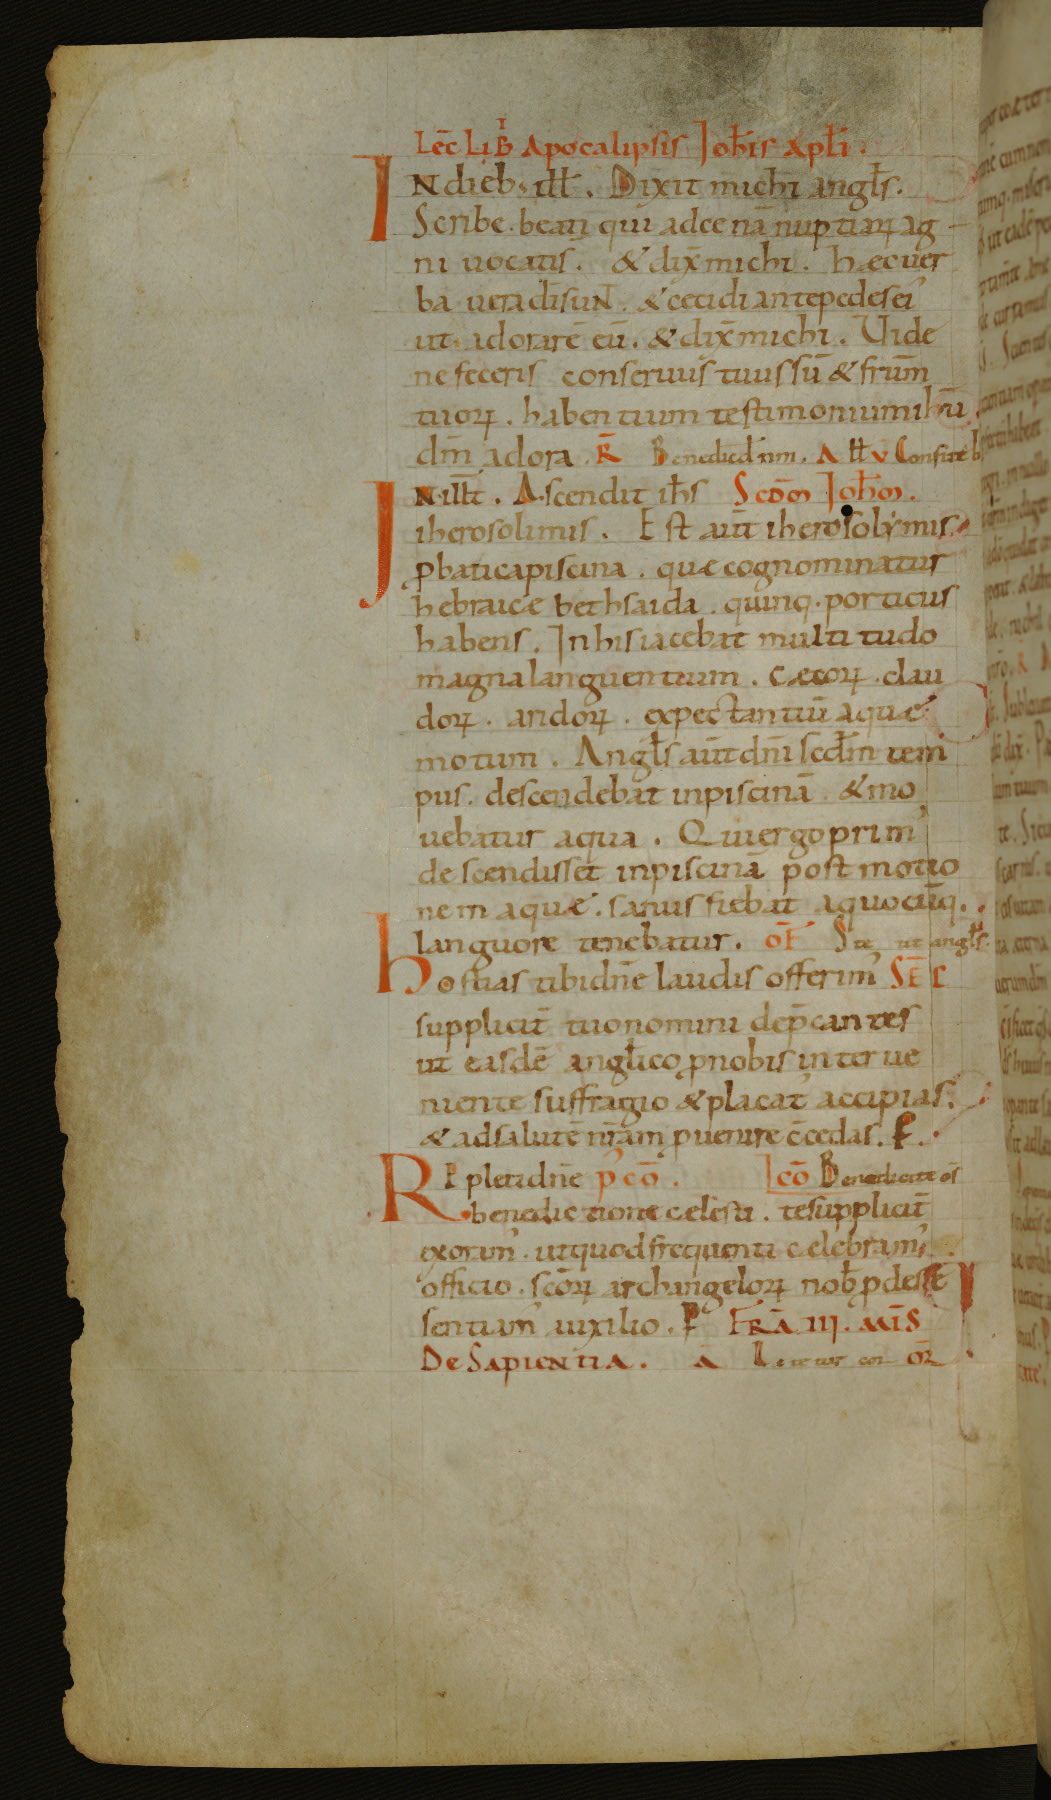 Lec̄ Lib̄ Apocalipsis Joħis apłi.
IN dieb; ilł. Dixit michi angłs.
Scribe. beati qui ad cenā nuptiaꝝ ag
ni uocati s̄. & dix̄ michi. Hæc uer
ba uera di suN̄. & cecidi ante pedes ei᾿
ut adorarē eū. & dix̄ michi. Uide
ne feceris conseruus tuus sū & fr̄um
tuoꝝ. habentium testimonium ihū
dm̄ adora. R̄ Benedic dnm. A łł v Confite
IN illt̄. Ascendit iħs Scdm̄ Joħm.
iherosolimis. Est aut̄ iherosolymis
ꝓbatica piscina. quæ cognominatur
hebraice bethsaida. quinq. porticus
habens. In his iacebat multitudo
magna languentium. cæcoꝝ. clau
doꝝ. aridoꝝ. expectantiū aquæ
motum. Angłs aut̄ dn̄i scdm̄ tem
pus. descendebat in piscinā & mo
uebatur aqua. Qui ergo prim᾿
descendisset in piscinā post motio
nem aquæ. sanus fiebat a quocūq.
languore tenebatur. oF̄ Ste ut angłs.
Hostias tibi dn̄e laudis offerim᾿ SEC̄
suppliciт̄ tuo nomini dep̄cantes
ut easdē angłico ꝓ nobis interue
niente suffragio & placat᾿ accipias.
& ad salutē nr̄am ꝓuenire c̄cedas. P.
REpleti dn̄e p᾿ cō. cō Benedicite oš
benedictione cælesti. te supplicit̄
exoram᾿. ut quod frequenti celebram᾿
officio. sc̄oꝝ archangeloꝝ nob̄ ꝓdesse
sentiam᾿ auxilio. P FR̄A III. MIS̄
De Sapientia. Ā Letetur cor oR̄